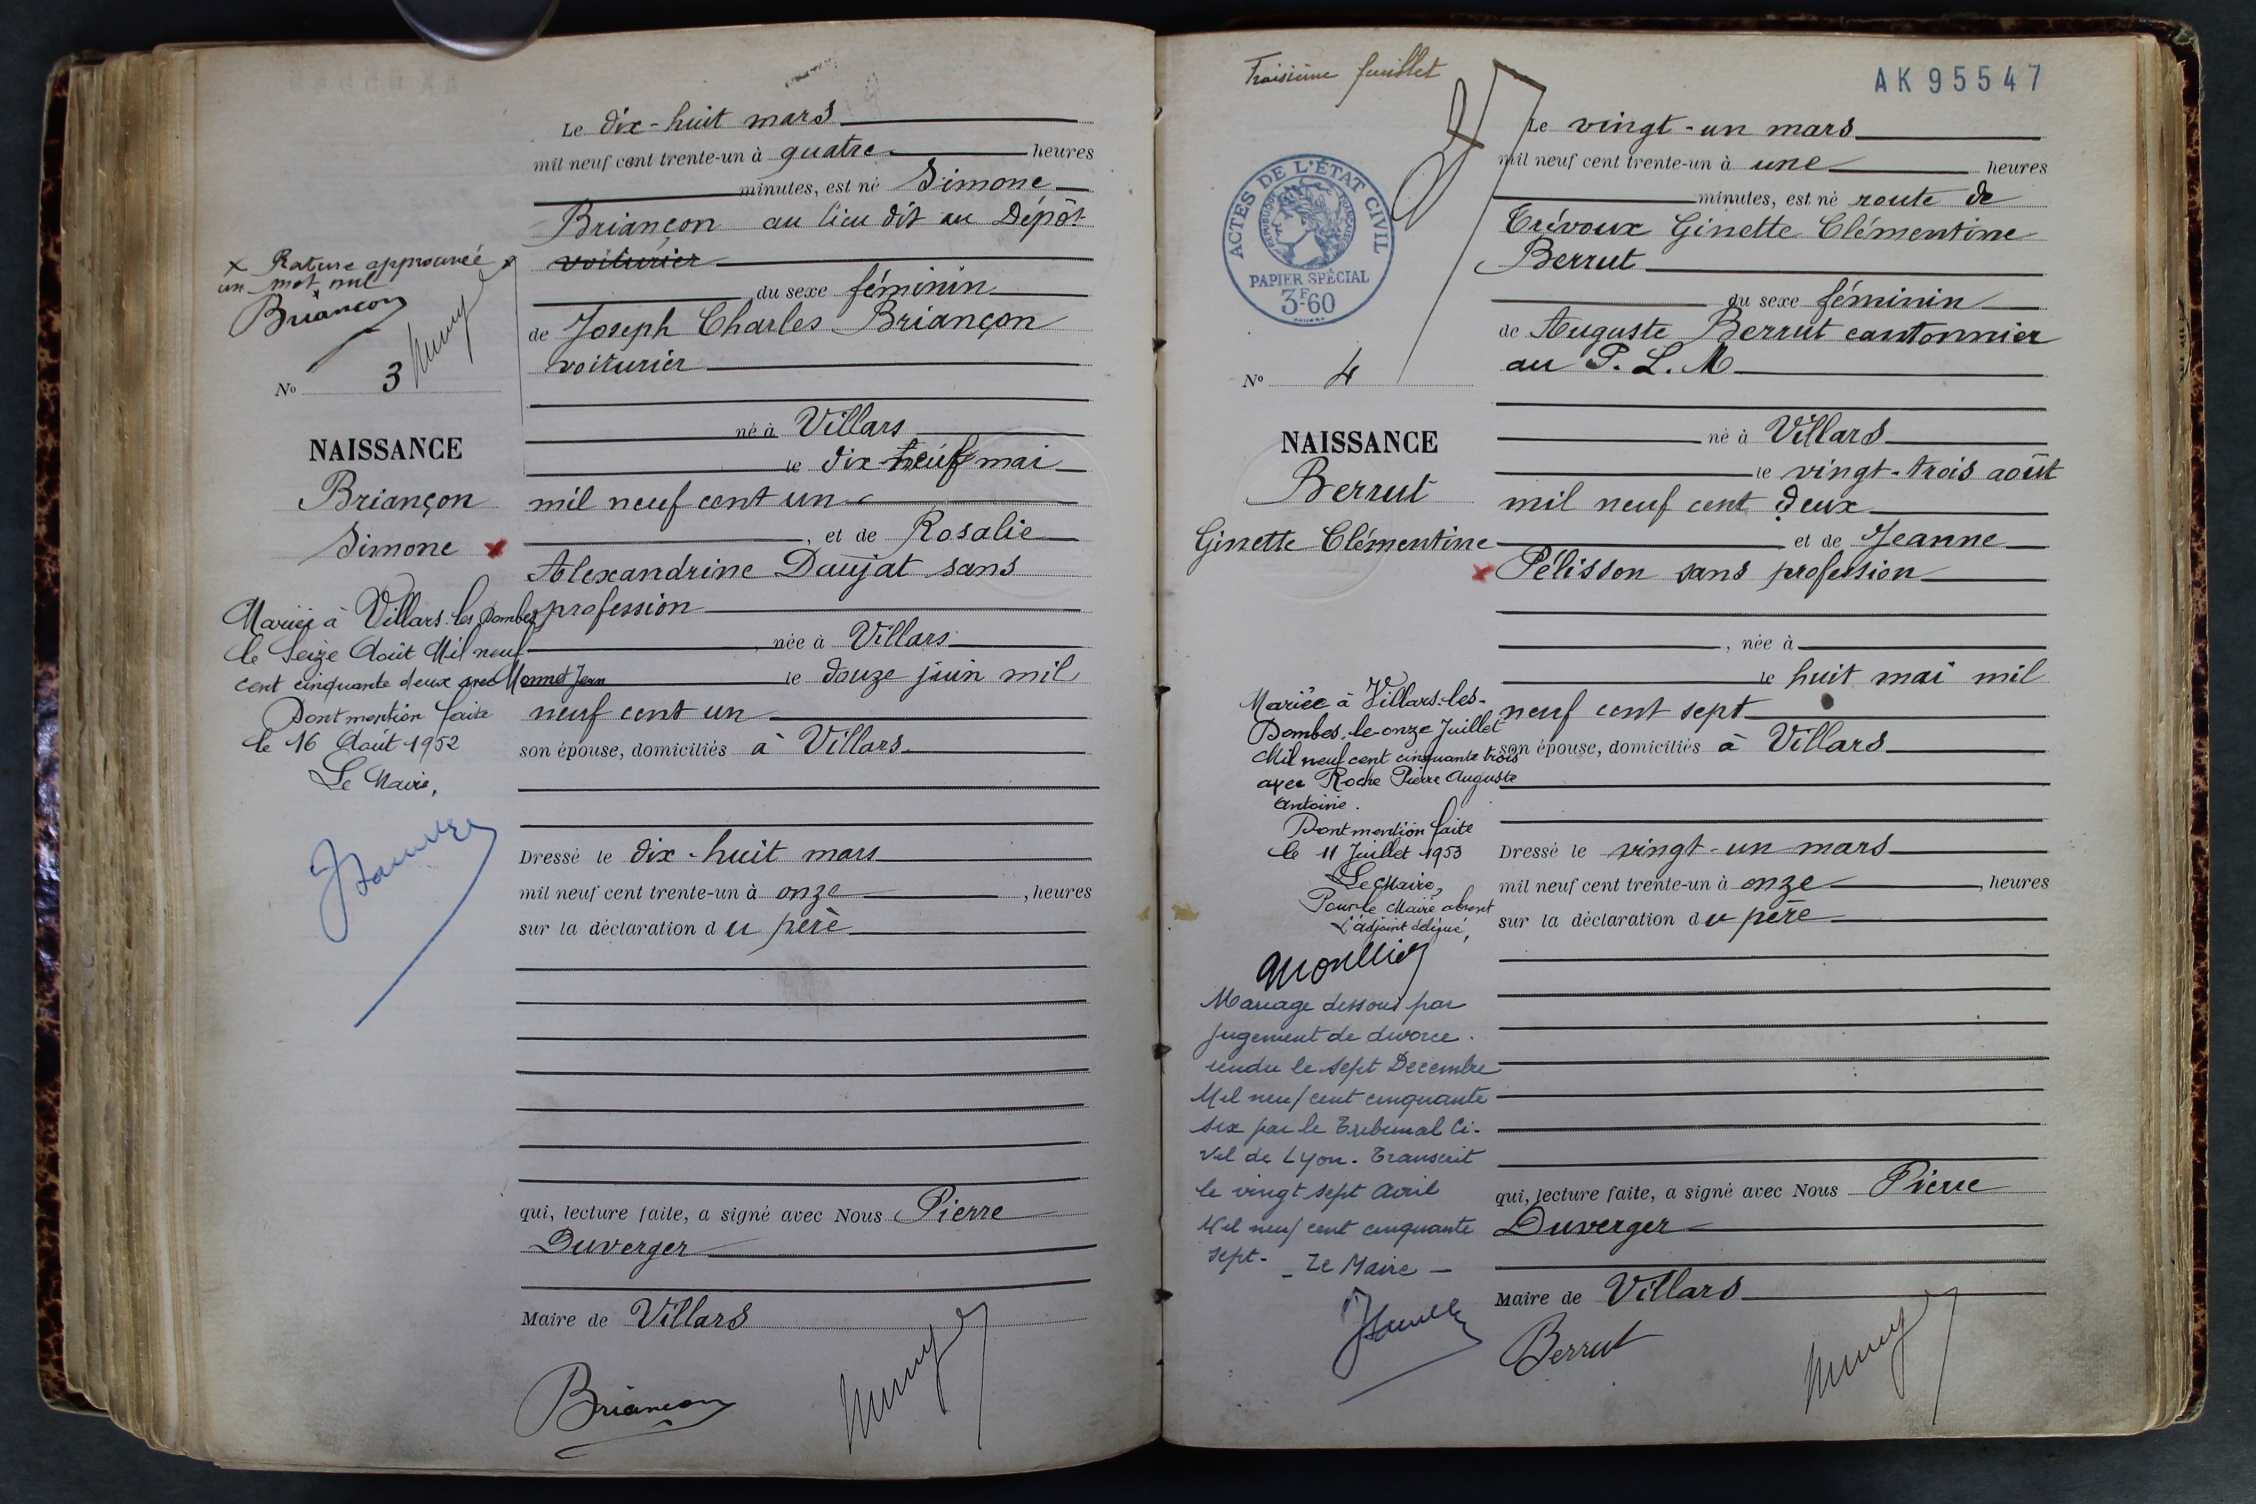 Le dix-huit mars
mil neuf cent trente-un à quatre heures
minutes, est né Simone
Briançon au lieu dit au Dépôt
voiturier
du sexe féminin
de Joseph Charles Briançon
voiturier
né à Villars
le dix-neuf mai
mil neuf cent un
, et de Rosalie
Alexandrine Daujat sans
profession
, née à Villars
le douze juin mil
neuf cent un
son épouse, domiciliés à Villars
Dressé le dix-huit mars
mil neuf cent trente-un à onze , heures
sur la déclaration du père
qui, lecture faite, a signé avec Nous Pierre
Duverger
Maire de Villars
Briançon
x Rature approuvée
un mot nul
Briançon
No 3
NAISSANCE
Briançon
Simone
Mariée à Villars-les-Dombes
le Seize Août Mil neuf
cent cinquante deux avec Monnet Jean
Dont mention faite
le 16 Août 1952
Le Maire,
Troisième feuillet
AK 95547
ACTES DE L'ÉTAT CIVIL
REPUBLIQUE FRANÇAISE
PAPIER SPÉCIAL
3F60
No 4
NAISSANCE
Berrut
Ginette Clémentine
Mariée à Villars-les-
Dombes, le onze Juillet
Mil neuf cent cinquante trois
avec Roche Pierre Auguste
Antoine.
Dont mention faite
le 11 Juillet 1953
Le Maire,
Pour le Maire absent
L'adjoint délégué,
Mariage dissous par
jugement de divorce
rendu le sept Decembre
Mil neuf cent cinquante
six par le Tribunal Ci-
vil de Lyon. Transcrit
le vingt sept Avril
Mil neuf cent cinquante
sept.
- Le Maire -
Le vingt-un mars
mil neuf cent trente-un à une heures
minutes, est né route de
Trévoux Ginette Clémentine
Berrut
du sexe féminin
de Auguste Berrut cantonnier
au P. L. M
né à Villars
le vingt-trois août
mil neuf cent deux
et de Jeanne
Pélisson sans profession
, née à
le huit mai mil
neuf cent sept
son épouse, domiciliés à Villars
Dressé le vingt-un mars
mil neuf cent trente-un à onze , heures
sur la déclaration du père
qui, lecture faite, a signé avec Nous Pierre
Duverger
Maire de Villars
Berrut